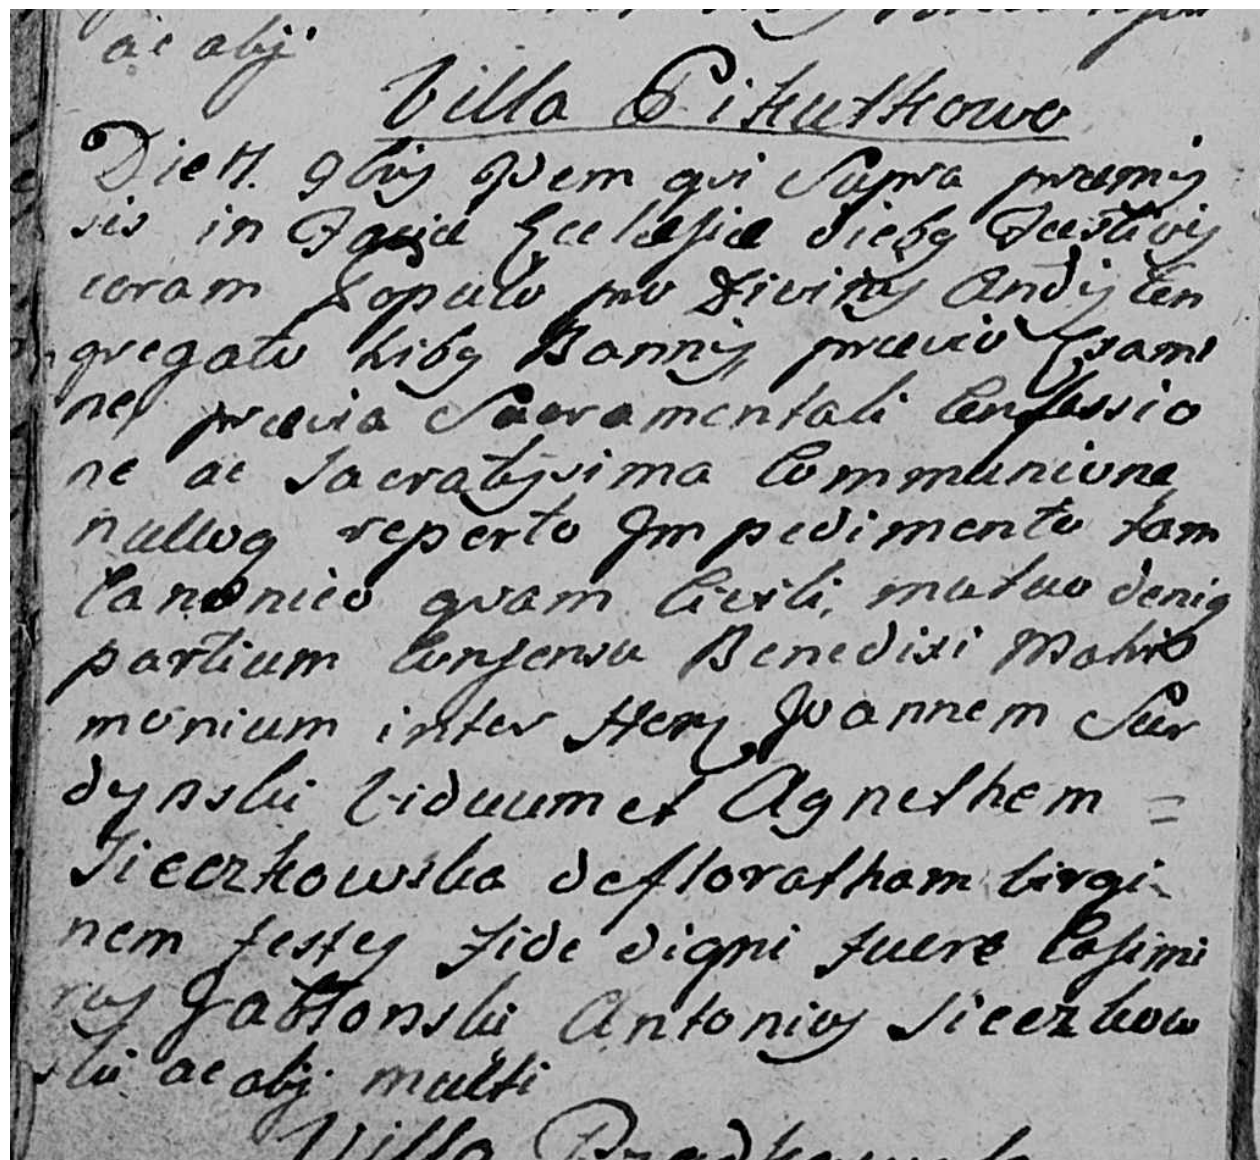 ac alij
Villa Pikutkowo
Die 17. 9bris Idem qvi Supra præmis
sis in Facie Ecclesiæ diebg Festivis
coram Populo pro Divinis Audijs Con
gregato tribg Bannis prævio Exami
ne, prævia Sacramentali Confessio
ne ac Sacratissima Communione
nulloq reperto Impedimento tam
Canonico qvam Civili, mutuo deniq
partium Consensu Benedixi Matri
monium inter Joannem Sur
dynski Viduum et Agnethem =
Sieczkowska defloratham Virgi
nem testes Fide digni fuere Casimi
rus Jabłonski Antonius Sieczkow
ski ac alij multi
Villa